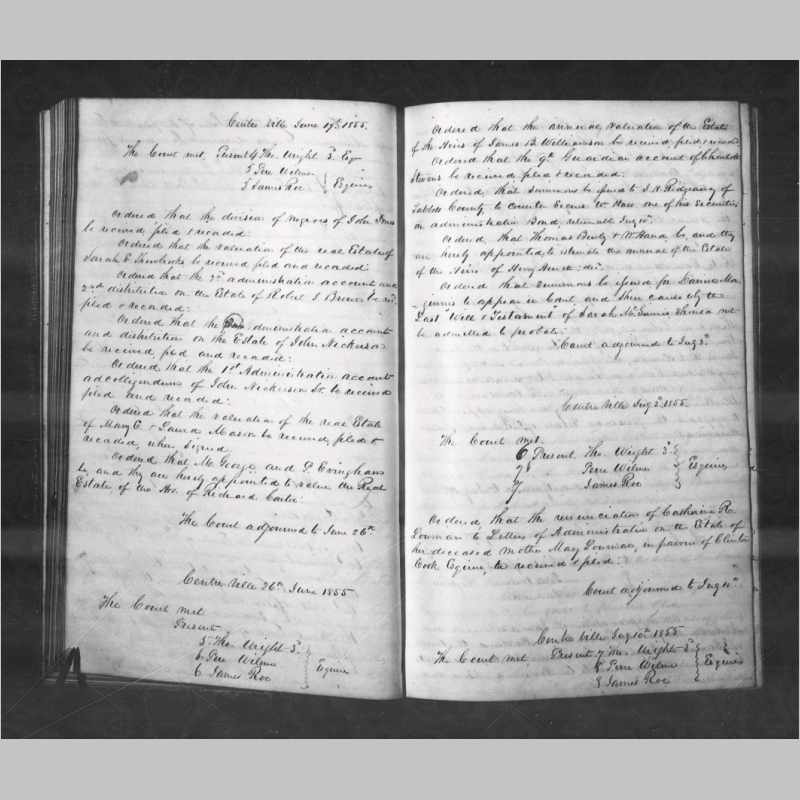 Centre Ville June 19th 1855.
The Court met. Present 4 Tho. Wright 3d. Esqr
5 Pere Wilmer
5 James Roe } Esquires
Ordered that the division of negroes of John
be received, filed & recorded.
Ordered that the valuation of the real Estate of
Sarah E. be received filed and recorded.
Ordered that the 3rd administration account and
2nd distribution on the Estate of Robert S. Brown be recd.
filed & recorded.
Ordered that the administration account
and distribution on the Estate of John Nickerson
be received, filed and recorded.
Ordered that the 1st Administration account
ad colligendum of John Nickerson Sr. be received
filed and recorded.
Ordered that the valuation of the real Estate
of Mary E. & Laura Mason be received, filed &
recorded, when signed.
Ordered that Mc and
be, and they are hereby appointed to value the Real
Estate of the Hrs. of Richard Carter.
The Court adjourned to June 26th.
Centre Ville 26th June 1855
The Court met
Present
5 Tho. Wright 3d.
6 Pere Wilmer
6 James Roe } Esquires
Ordered that the annual valuation of the Estate
of the Heirs of James B. Williamson be received, filed & record
Ordered that the 9th Guardian account of
Stevens be received filed & recorded.
Ordered, that summons be issued to of
County, to counter secure Wm one of his securities
on administration Bond, returnable
Ordered, that Thomas & Wm be, and they
are hereby appointed, to estimate the annual of the Estate
of the Heirs of Henry decd.
Ordered that summons be issued for
to appear in Court and show cause why the
Last Will & Testament of Sarah should not
be admitted to probate.
Court adjourned to July 3d.
Centre Ville July 3d. 1855.
The Court met.
6 Present Tho. Wright 3d.
7 Pere Wilmer
7 James Roe } Esquires
Ordered, that the renunciation of Catharine R.
to Letters of Administration on the Estate of
her deceased Mother Mary in favour of Clinton
Cook Esquire, be received & filed.
Court adjourned to July 10th
Centre Ville July 10th 1855
The Court met Present 7 Tho. Wright 3d.
8 Pere Wilmer
8 James Roe } Esquires